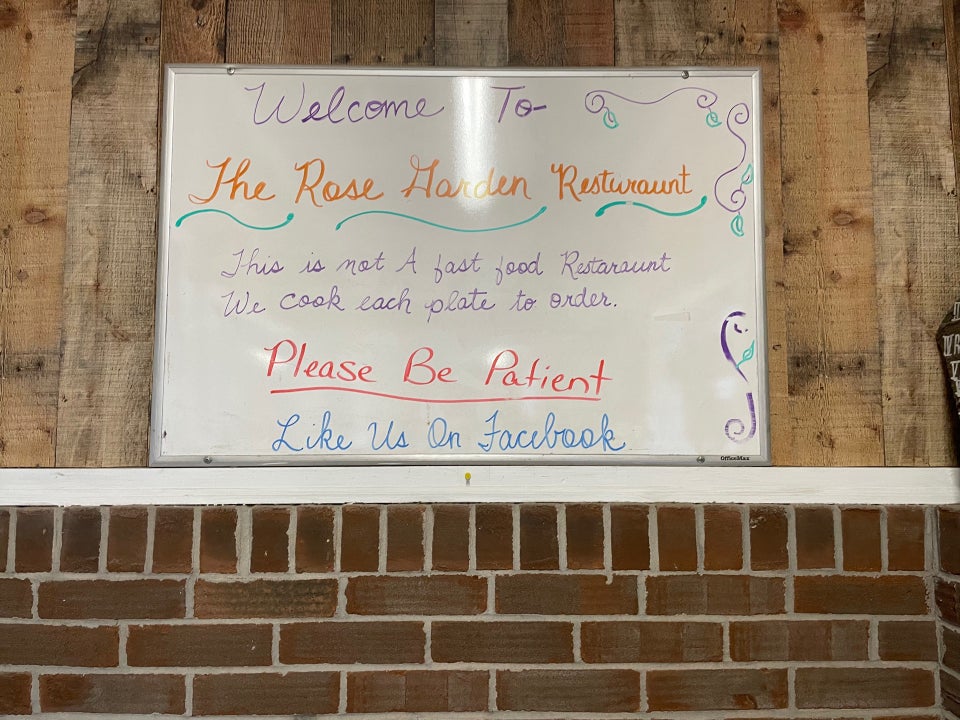 Welcome To-
The Rose Garden Resturaunt
This is not A fast food Restaraunt
We cook each plate to order.
Please Be Patient
Like Us On Facebook
OfficeMax